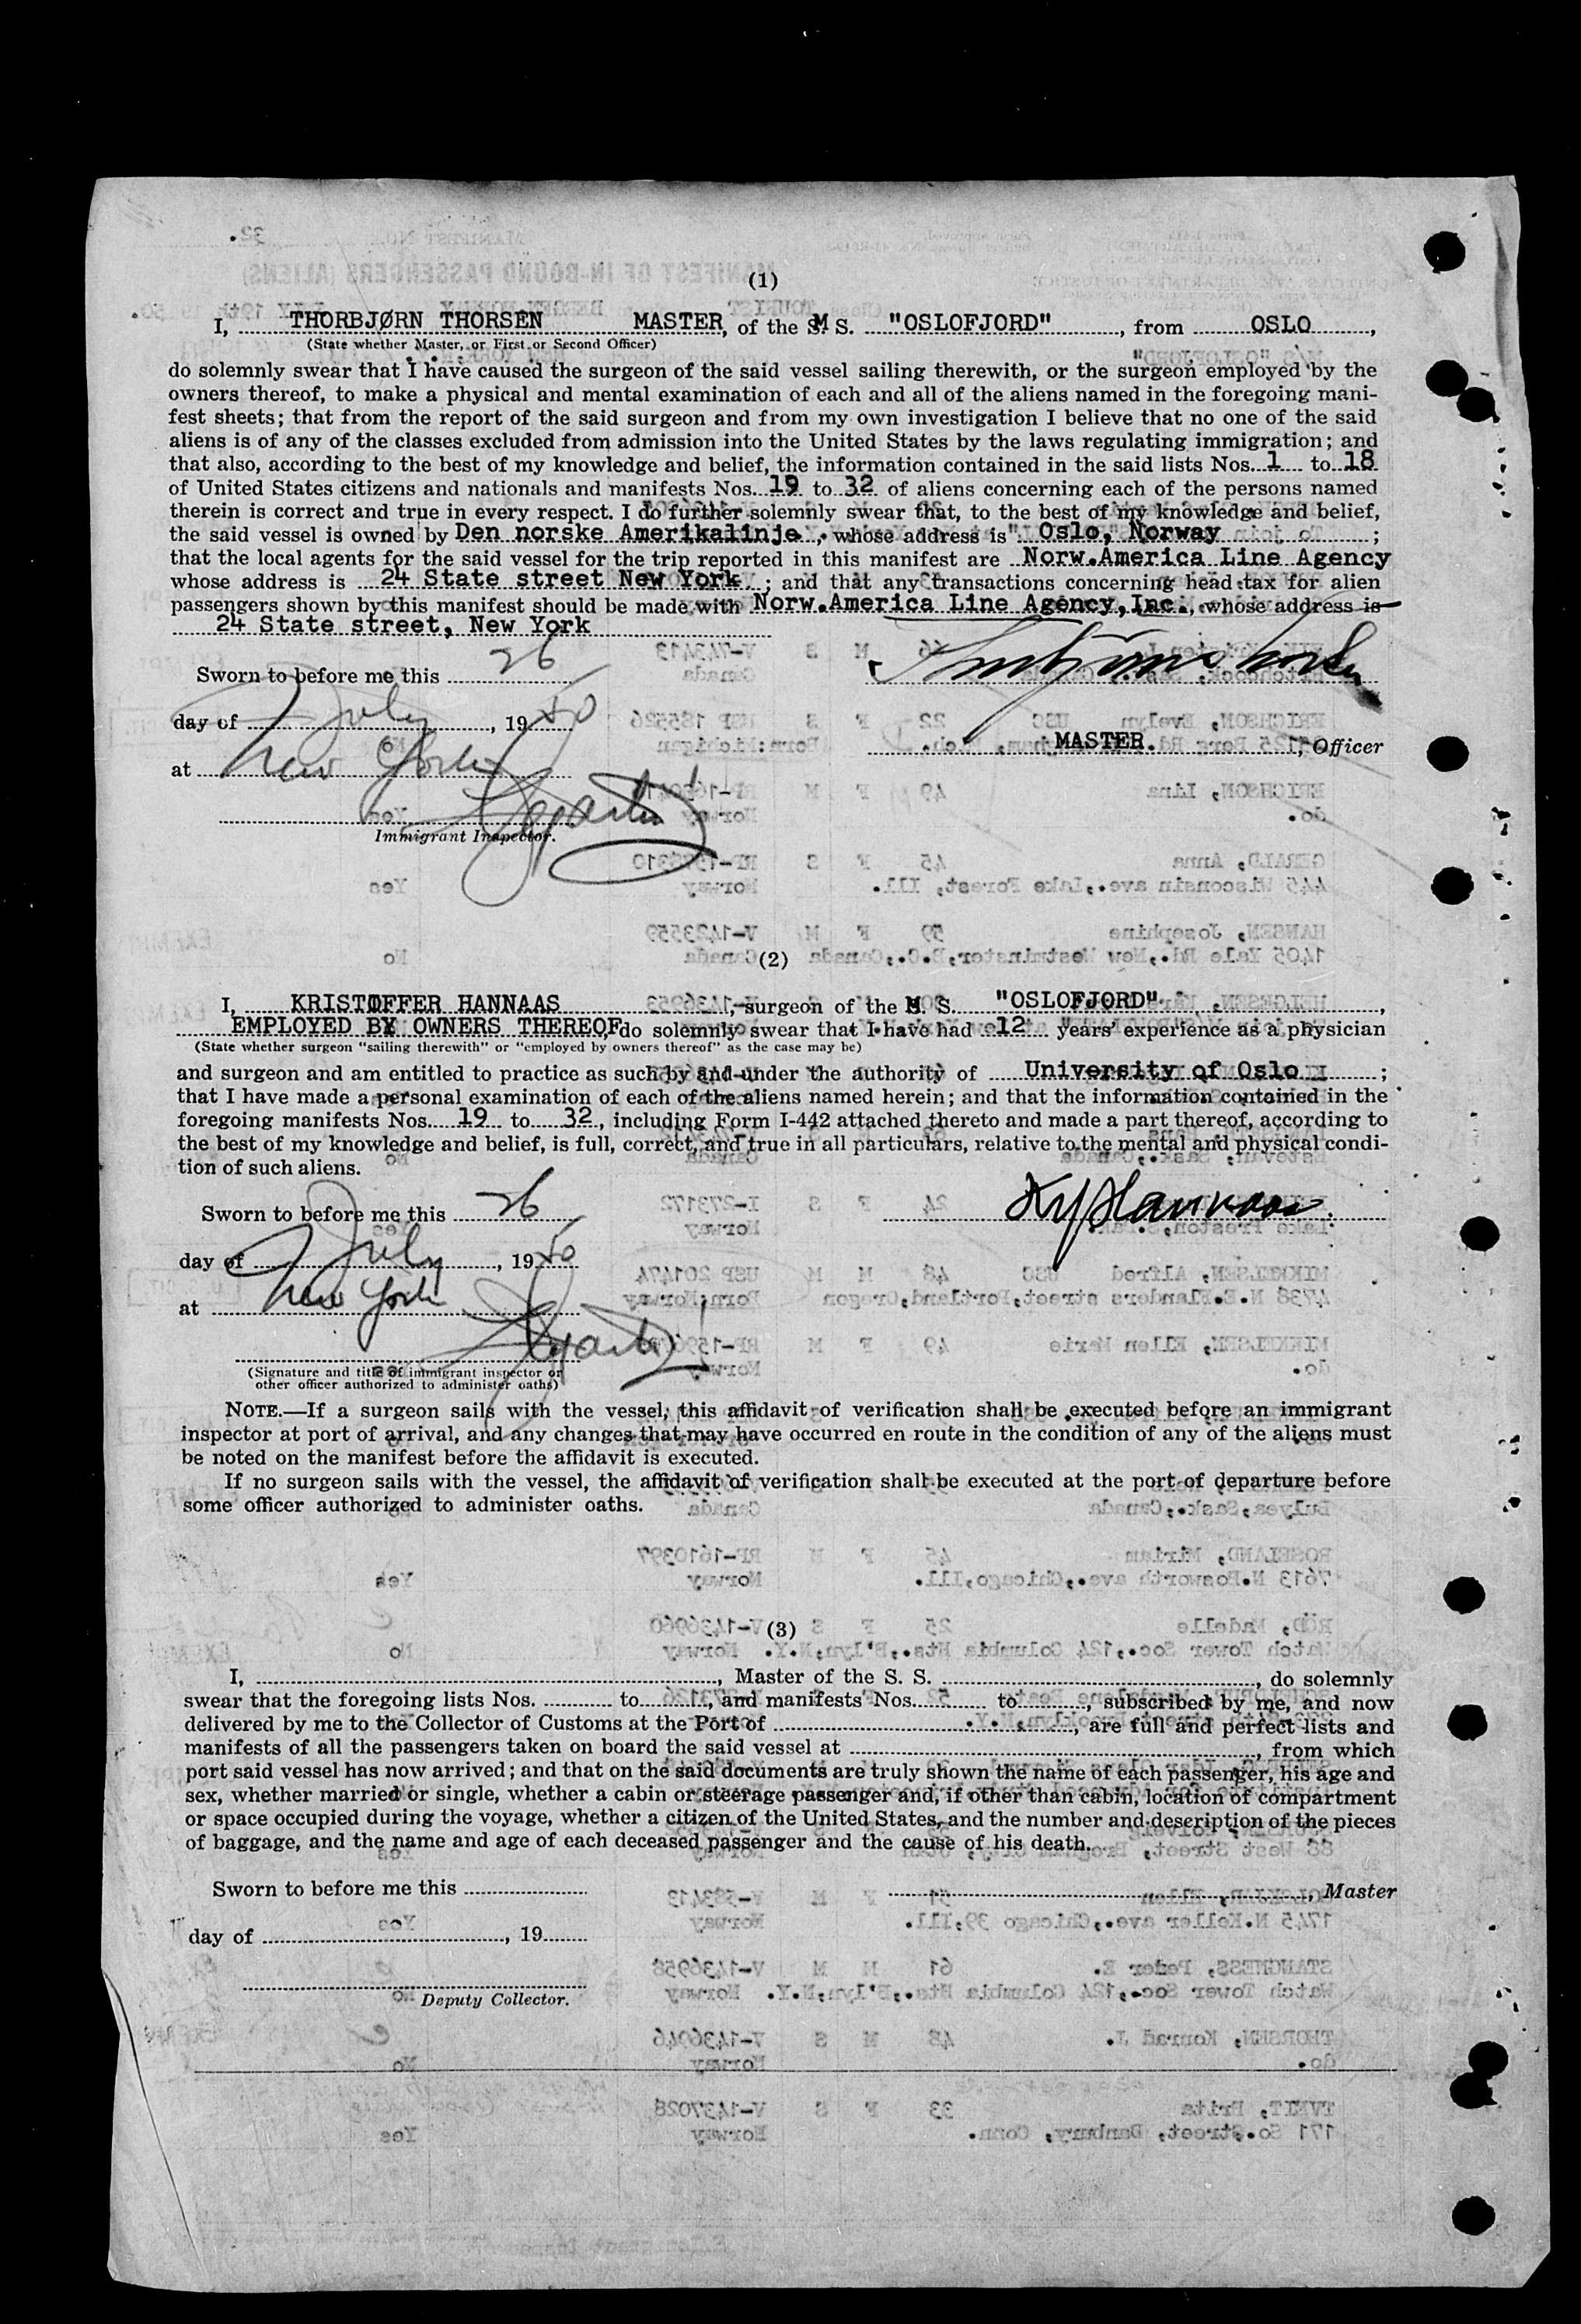 (1)
I, THORBJØRN THORSEN MASTER, of the M S. "OSLOFJORD", from OSLO,
(State whether Master, or First or Second Officer)
do solemnly swear that I have caused the surgeon of the said vessel sailing therewith, or the surgeon employed by the
owners thereof, to make a physical and mental examination of each and all of the aliens named in the foregoing mani-
fest sheets; that from the report of the said surgeon and from my own investigation I believe that no one of the said
aliens is of any of the classes excluded from admission into the United States by the laws regulating immigration; and
that also, according to the best of my knowledge and belief, the information contained in the said lists Nos. 1 to 18
of United States citizens and nationals and manifests Nos. 19 to 32 of aliens concerning each of the persons named
therein is correct and true in every respect. I do further solemnly swear that, to the best of my knowledge and belief,
the said vessel is owned by Den norske Amerikalinje, whose address is Oslo, Norway;
that the local agents for the said vessel for the trip reported in this manifest are Norw.America Line Agency
whose address is 24 State street New York; and that any transactions concerning head tax for alien
passengers shown by this manifest should be made with Norw.America Line Agency,Inc., whose address is
24 State street, New York
Sworn to before me this 26
day of July, 1950
MASTER., Officer
at New York
Immigrant Inspector.
(2)
I, KRISTOFFER HANNAAS, surgeon of the M. S. "OSLOFJORD",
EMPLOYED BY OWNERS THEREOF, do solemnly swear that I have had 12 years' experience as a physician
(State whether surgeon "sailing therewith" or "employed by owners thereof" as the case may be)
and surgeon and am entitled to practice as such by and under the authority of University of Oslo;
that I have made a personal examination of each of the aliens named herein; and that the information contained in the
foregoing manifests Nos. 19 to 32, including Form I-442 attached thereto and made a part thereof, according to
the best of my knowledge and belief, is full, correct, and true in all particulars, relative to the mental and physical condi-
tion of such aliens.
Sworn to before me this 26
day of July, 1950
at New York
(Signature and title of immigrant inspector or
other officer authorized to administer oaths)
NOTE.—If a surgeon sails with the vessel, this affidavit of verification shall be executed before an immigrant
inspector at port of arrival, and any changes that may have occurred en route in the condition of any of the aliens must
be noted on the manifest before the affidavit is executed.
If no surgeon sails with the vessel, the affidavit of verification shall be executed at the port of departure before
some officer authorized to administer oaths.
(3)
I, , Master of the S. S. , do solemnly
swear that the foregoing lists Nos. to , and manifests Nos. to , subscribed by me, and now
delivered by me to the Collector of Customs at the Port of , are full and perfect lists and
manifests of all the passengers taken on board the said vessel at , from which
port said vessel has now arrived; and that on the said documents are truly shown the name of each passenger, his age and
sex, whether married or single, whether a cabin or steerage passenger and, if other than cabin, location of compartment
or space occupied during the voyage, whether a citizen of the United States, and the number and description of the pieces
of baggage, and the name and age of each deceased passenger and the cause of his death.
Sworn to before me this
, Master
day of , 19
Deputy Collector.